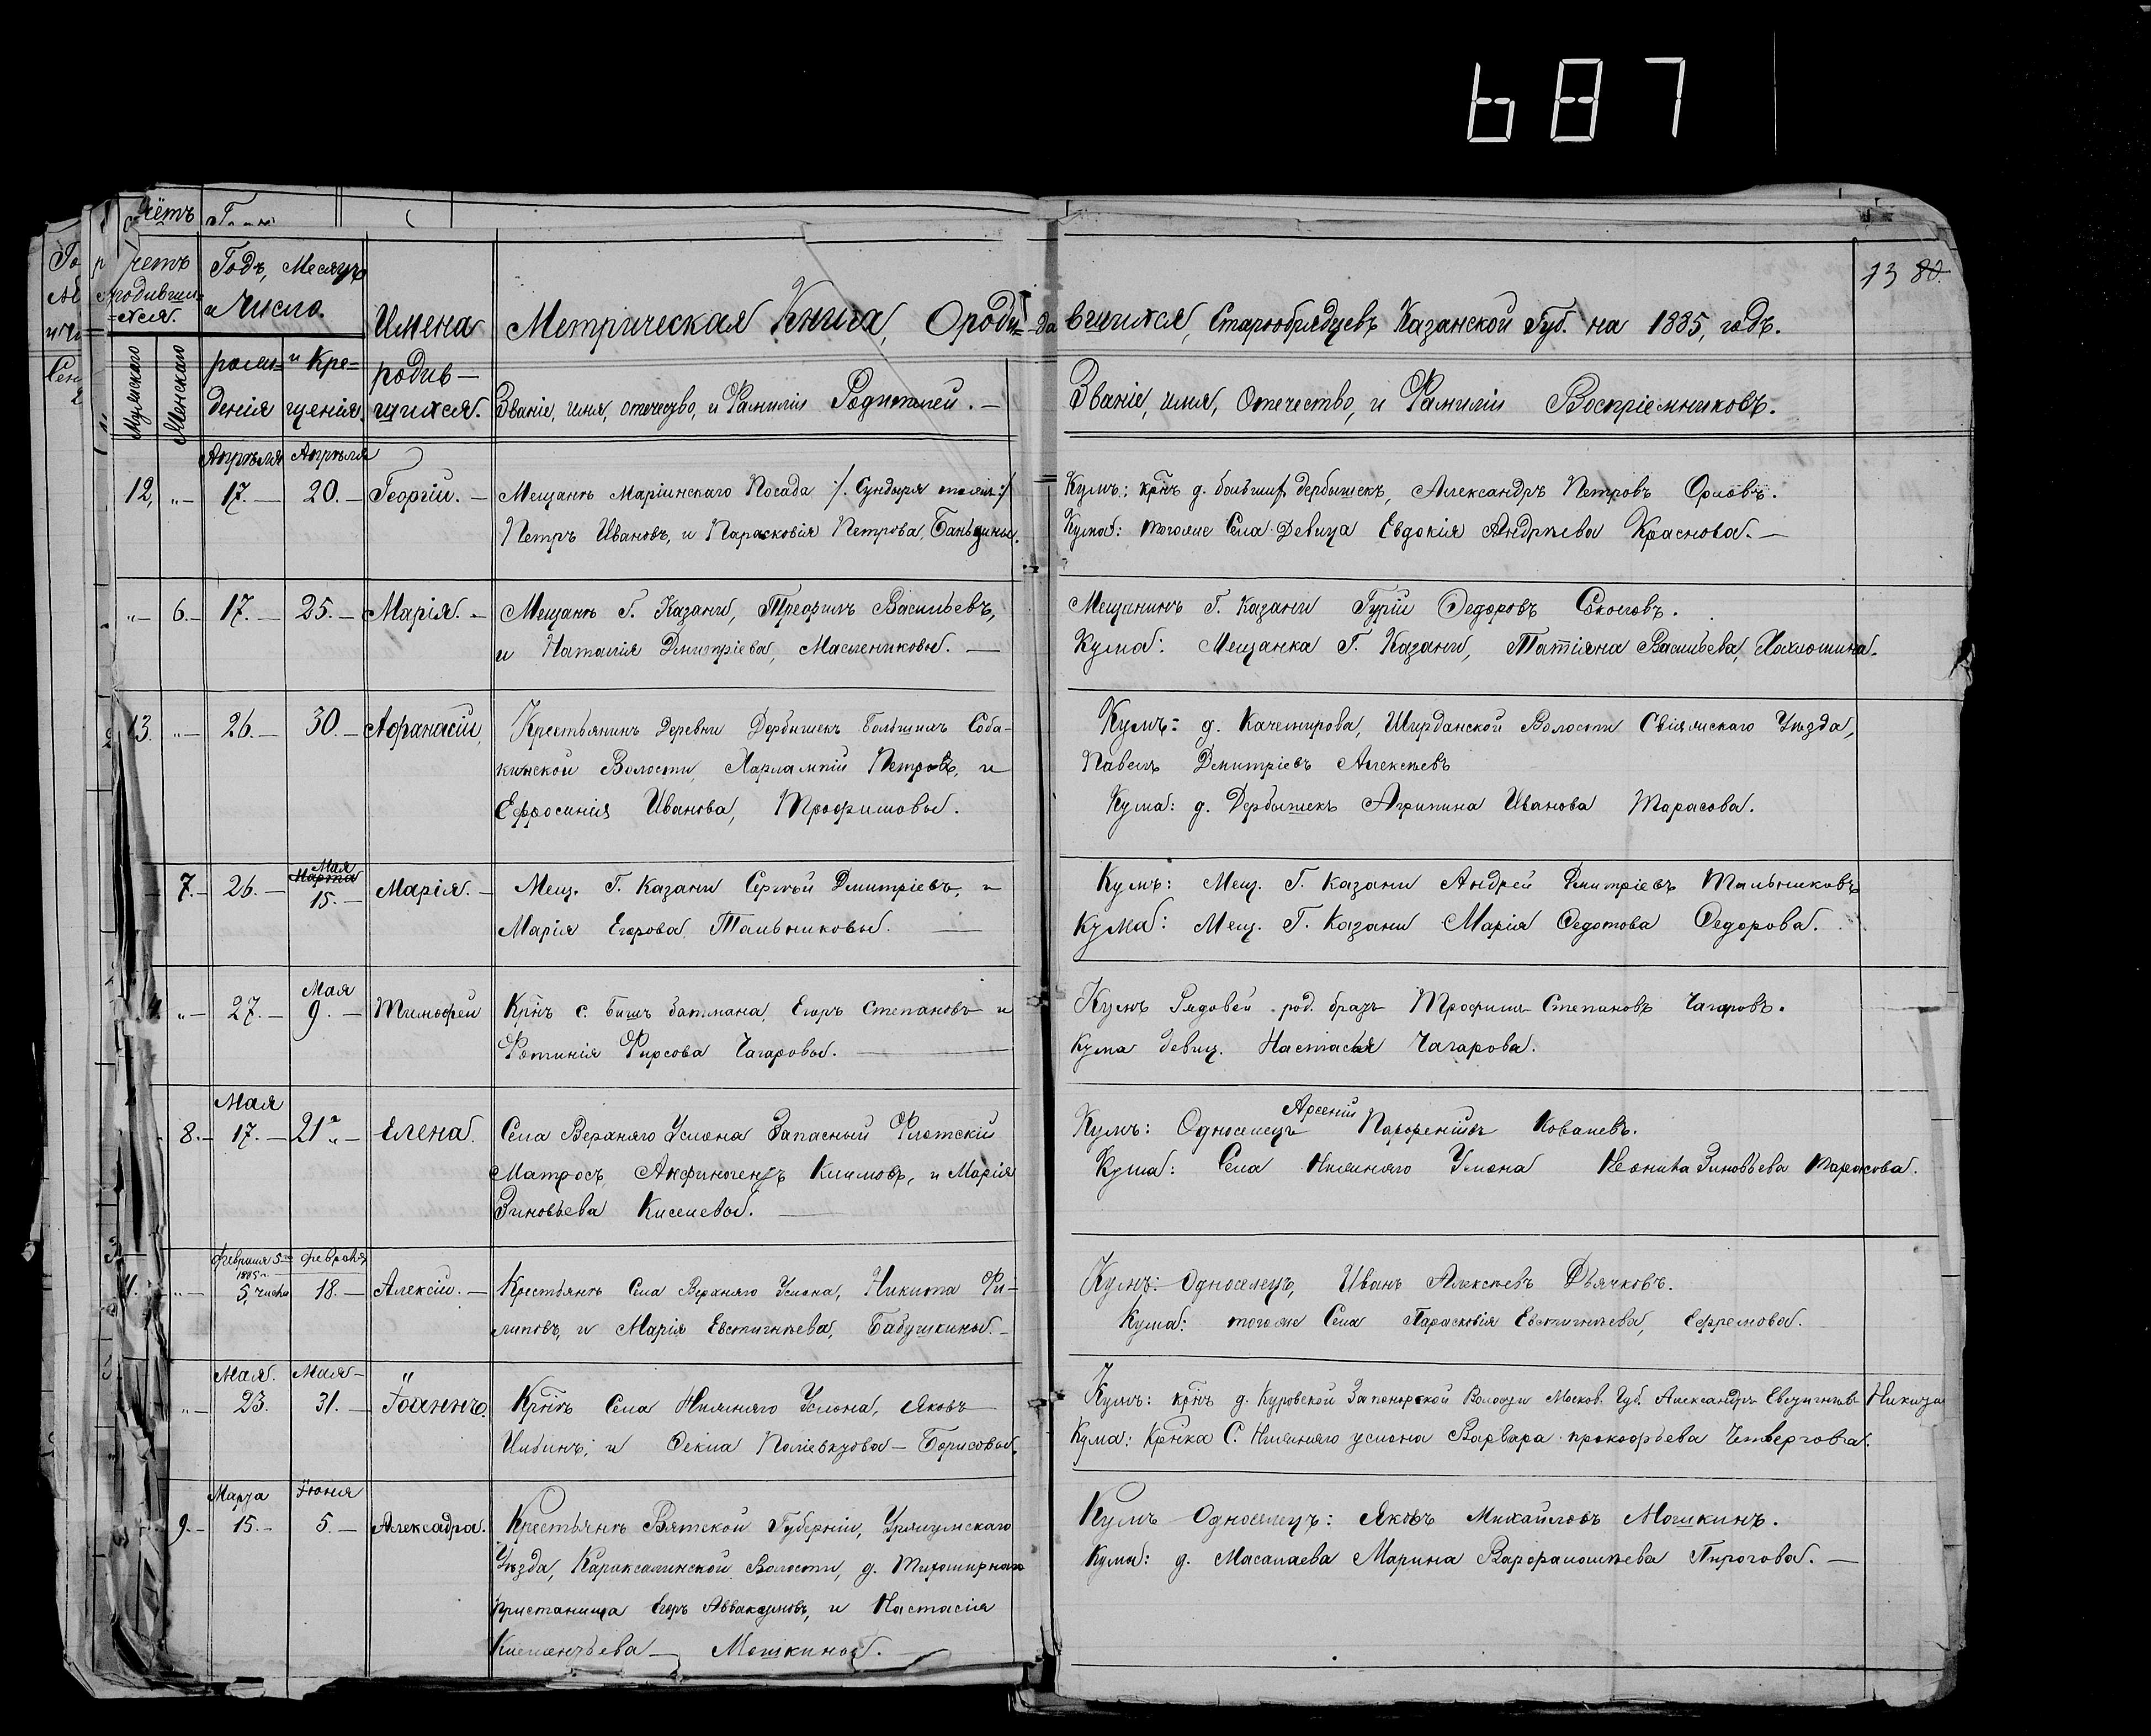 687
13 80.
Счетъ
родивши-
-хся.
Годъ, Месяцъ
и Число.
Имена
родив-
шихся.
Метрическая Книга, О роди-
вшихся, Старообрядцевъ Казанской Губ. на 1885, годъ.
Мужскаго
Женскаго
рож-
денія
и Кре-
щенія
Званіе, имя, отечество, и Фамиліи Родителей. —
Званіе, имя, Отечество, и Фамиліи Воспріемниковъ.
Апрѣля Апрѣля
12, „— 17. — 20. — Георгій. —
Мещанъ Маріинскаго Посада /. Сундыря тожъ :/
Петръ Ивановъ, и Парасковія Петрова,
Кумъ: крнъ д. большихъ дербышекъ, Александръ Петровъ Орловъ.
Кума: тогоже Села Девица Евдокія Андрѣева Краснова. —
„— 6. — 17. — 25. — Марія. —
Мещанъ Г. Казани, Васильевъ,
и Наталія Дмитріева, Масленниковы. —
Мещанинъ Г. Казани Гурій Федоровъ Соколовъ.
Кума: Мещанка Г. Казани, Татіяна Васильева,
13. „— 26. — 30. — Афанасій,
Крестьянинъ Деревни Дербышекъ Большихъ Соба-
кинской Волости, Харлампій Петровъ, и
Ефросинія Иванова, Трофимовы.
Кумъ: д. Ширданской Волости Свіяжскаго Уѣзда,
Павелъ Дмитріевъ Алексѣевъ
Кума: д. Дербышекъ Агрипина Иванова Тарасова.
Мая
Марта
7. — 26. — 15. — Марія. —
Мещ. Г. Казани Сергѣй Дмитріевъ, и
Марія Егорова Тальниковы. —
Кумъ: Мещ. Г. Казани Андрей Дмитріевъ Тальниковъ
Кума: Мещ. Г. Казани Марія Федотова Федорова.
Мая
„— 27. — 9. — Тимофей
Крнъ с. батмана, Егоръ Степановъ и
Фотинія Фирсова Чагаровы. —
Кумъ Рядовой род. братъ Трофимъ Степановъ Чагаровъ.
Кума девиц. Настасья Чагарова.
Мая
8. — 17. — 21 „— Елена.
Села Верхняго Услона Запасный Флотскій
Матросъ Анфиногенъ Климовъ, и Марія
Зиновьева Киселевы. —
Арсеній
Кумъ: Односелецъ Парфеніевъ Ковалевъ.
Кума: Села Нижняго Услона Зиновьева Тарасова.
Февраля 5 Февраля
1885 г.
„— 5, числа 18. — Алексій. —
Крестьянъ Села Верхняго Услона, Никита Фи-
липовъ, и Марія Евстигнѣева, Бабушкины. —
Кумъ: Односелецъ, Иванъ Алексѣевъ Дьячковъ.
Кума: тогоже Села Парасковія Евстигнѣева, Ефремова.
Мая. Мая —
„— 23. 31. — Іоаннъ.
Крнъ Села Нижняго Услона, Яковъ
и Фекла Борисовы.
Кумъ: крнъ д. Куровской Запонорской Волости Москов. Губ. Александръ Евстигнѣевъ
Кума: Крнка С. Нижняго услона Варвара прокофьева Четвергова.
Марта Іюня
9. — 15. — 5. — Алексадра.
Крестьянъ Вятской Губерніи, Уржумскаго
Уѣзда, Волости, д. Тихомирнаго
пристанища Егоръ Аввакумовъ, и Настасія
Клементьева — Мошкины.
Кумъ Односелецъ: Яковъ Михайловъ Мошкинъ.
Кума: д. Масалаева Марина Варфаломѣева Пирогова. —